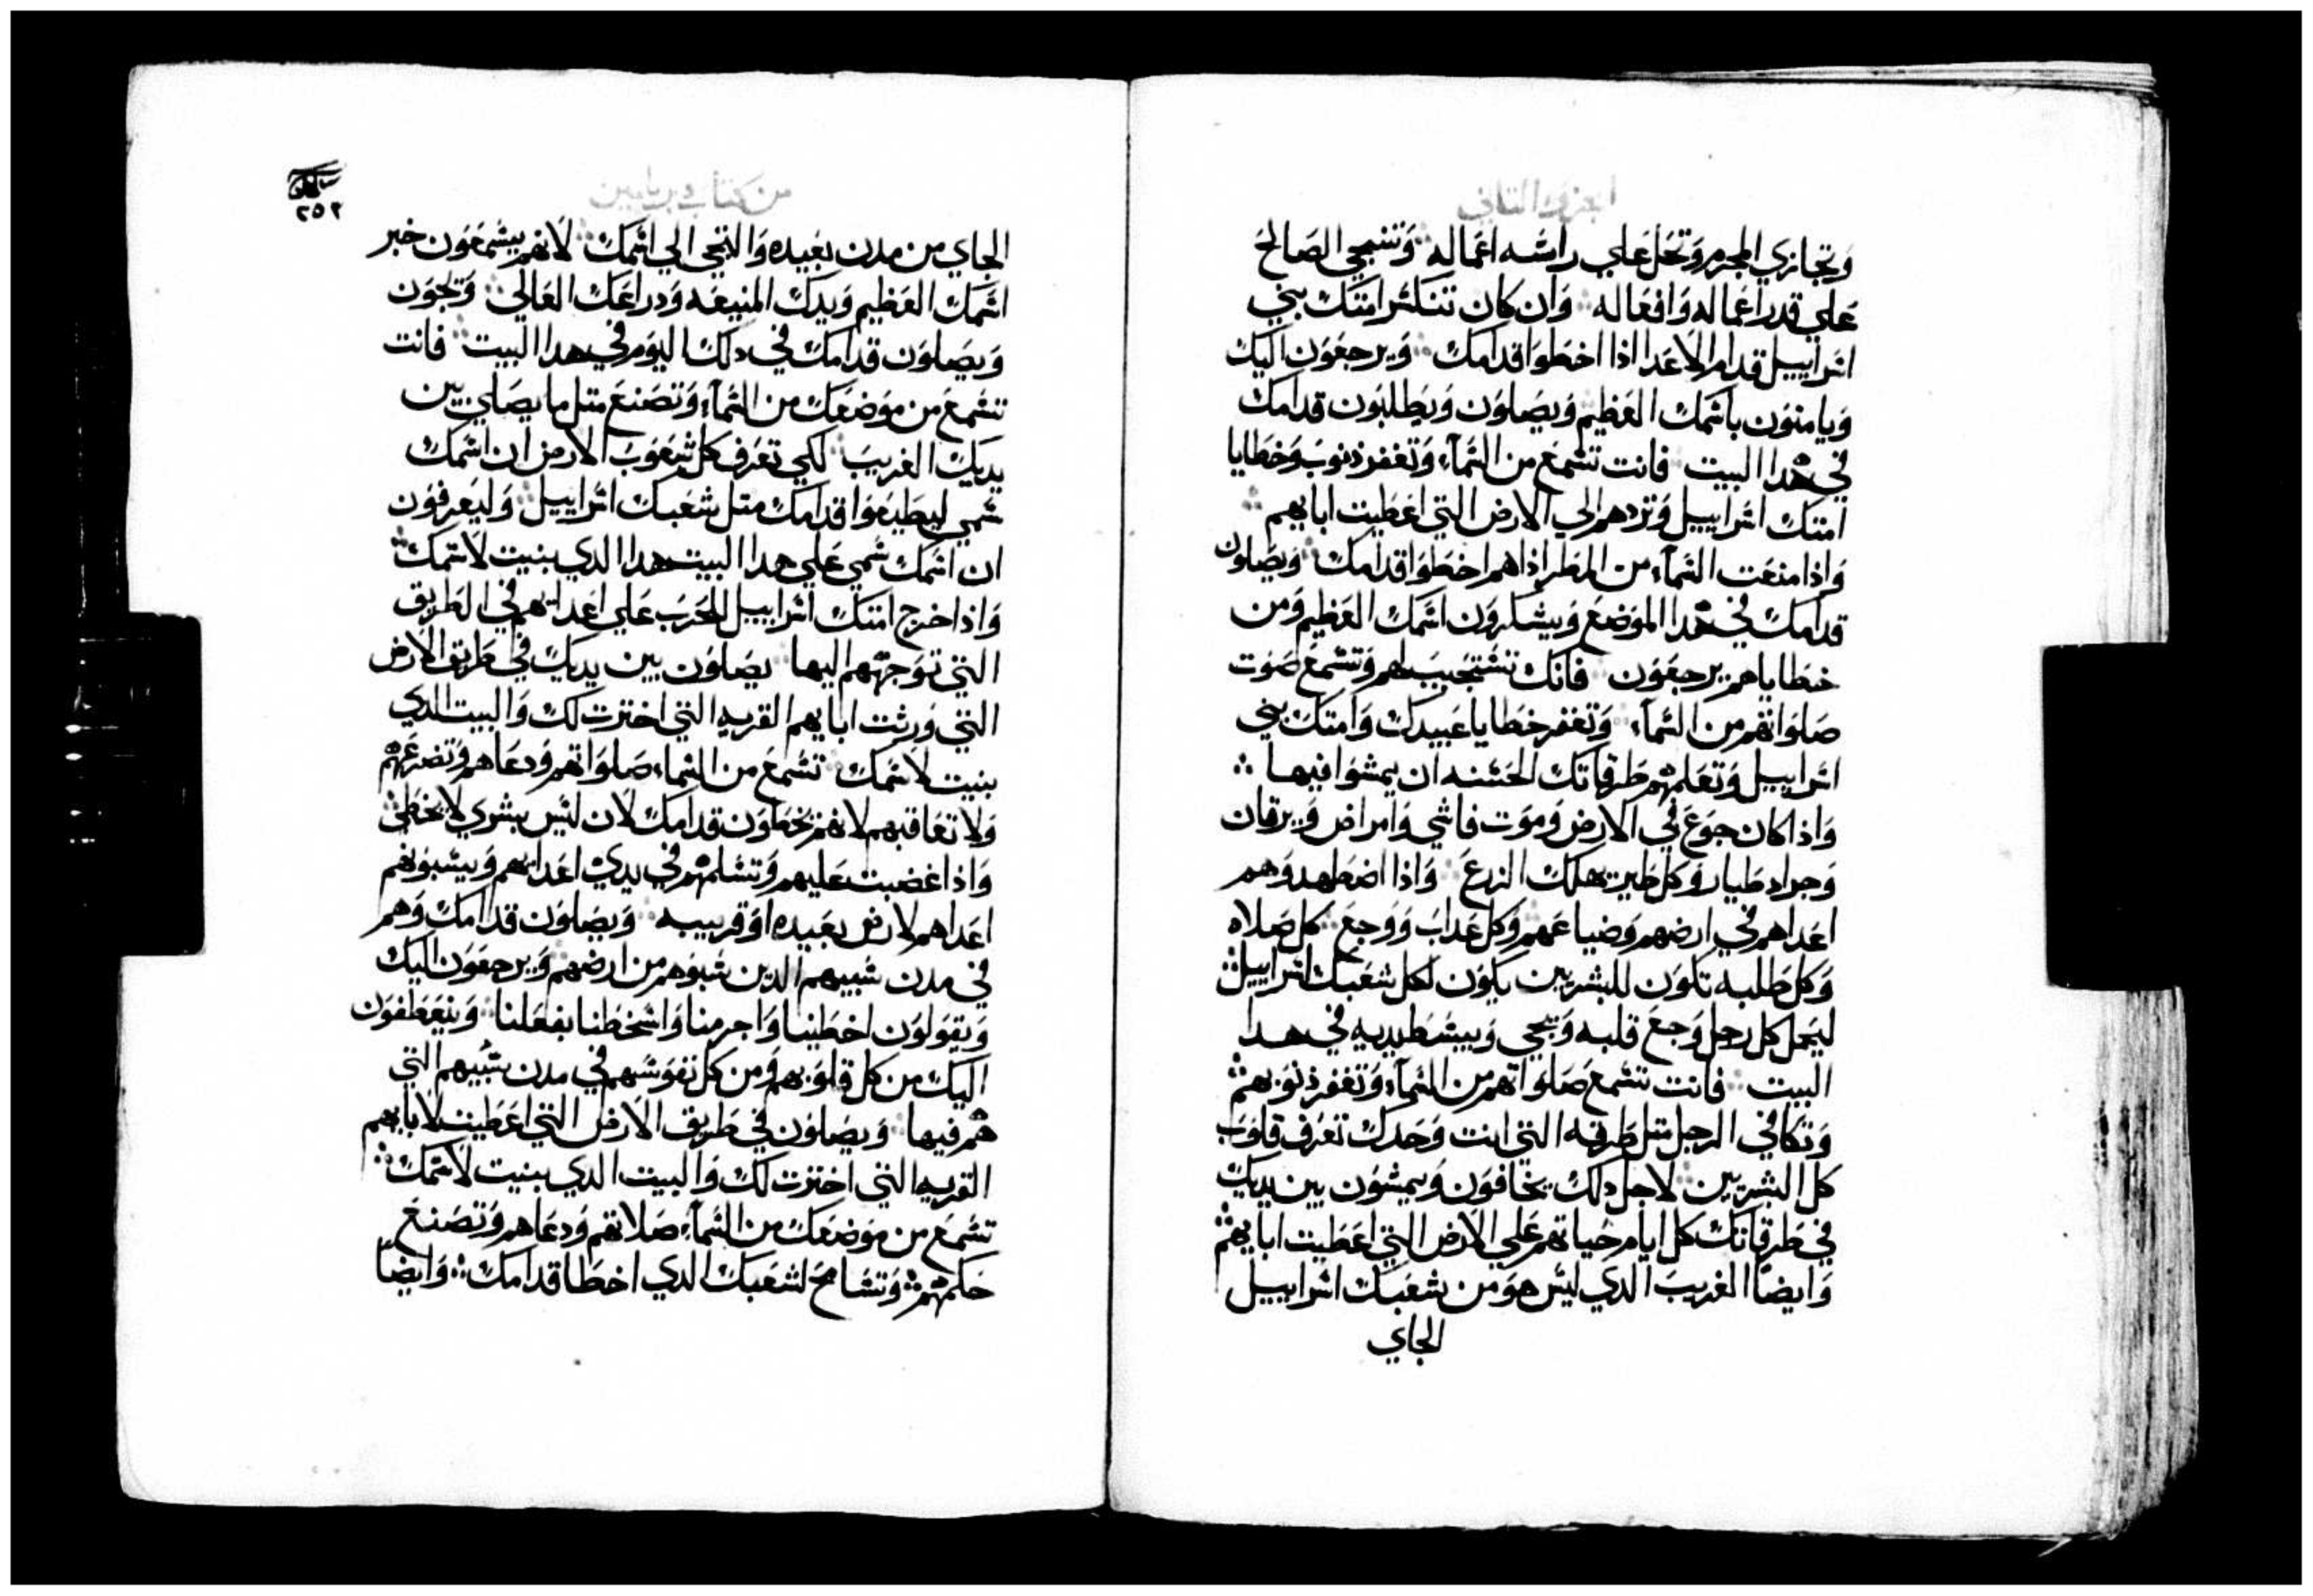 الجزو التاني
وَتجازي المجرم وَتحَل عَلي راسَه اعَماله وَتنجي الصَالحَ
عَلي قدر اعَماله وَافعَاله وَان كان تنكسَر امتك بني
اسَراييل قدام الاعَدا اذا اخطَوا قدامك وَيرجعَوَن اليك
وَيامنوَن باسَمك العَظيم وَيصَلوَن وَيطَلبوَن قدامك
في هدا البيت فانت تسَمعَ من السَمآء وَتغفر ذنوب وَخطَايا
امتك اسَراييل وَتردهم الي الارض التي اعَطَيت ابايهم
وَاذا منعَت السَمآء من المطَر اذا هم اخطَوَا قدامك وَيصَلوَن
قدامك في هدا الموَضعَ وَيشكروَن اسَمك العَظيم وَمن
خطَاياهم يرجعَوَن فانك تسَتجَيبَ لهم وَتسَمعَ صَوَت
صَلوَاتهم من السَمآء وَتغفر خطَايا عَبيدك وَامتك بني
اسَراييل وَتعَلمهم طَرقاتك الحسَنه ان يمشوَا فيها
وَاذا كان جوَعَ في الارض وَموَت فاشي وَامراض وَيرقان
وَجراد طَيار وَكل طَير يهلك الزرعَ وَاذا اضطَهدوَهم
اعَداهم في ارضهم وَضياعَهم وَكل عَدابَ وَوَجعَ كل صَلاه
وَكل طَلبه تكوَن للبشريين يكوَن لكل شعَبك اسَراييل
ليَحمل كل رجل وَجعَ قلبه وَيجي وَيبسَطَ يديه في هدا
البيت فانت تسَمعَ صَلوَاتهم من السَمآء وَتغفر ذنوَبهم
وَتكافي الرجل متل طَرقه التي انت وَحدك تعَرف قلوَبَ
كل البشريين لاجل دلك يخافوَن وَيمشوَن بين يديك
في طَرقاتك كل ايام حياتهم عَلي الارض التي اعَطَيت ابايهم
وَايضاً الغريبَ الدي ليسَ هوَ من شعَبك اسَراييل
الجاي
من كتاب
٢٥٢
الجاي من مدن بعَيده وَالتجي الي اسَمك لانهم يسَمعَوَن خبر
اسَمك العَظيم وَيدك المنيعَه وَدراعَك العَالي وَيجوَن
وَيصَلوَن قدامك في دلك اليوَم في هدا البيت فانت
تسَمعَ من موَضعَك من السَمآء وَتصَنعَ متل ما يصَلي بين
يديك الغريبَ لكي تعَرف كل شعَوَبَ الارض ان اسَمك
سَمي ليطَيعَوَا قدامك متل شعَبك اسَراييل وَليعَرفوَن
ان اسَمك سَمي عَلي هدا البيت هدا الدي بنيت لاسَمك
وَاذا خرج امتك اسَراييل للحَربَ عَلي اعَدايهم في الطَريق
التي توَجههم اليها يصَلوَن بين يديك في طَريق الارض
التي وَرثت ابايهم القريه التي اخترت لك وَالبيت الدي
بنيت لاسَمك تسَمعَ من السَماء صَلوَاتهم وَدعَاهم وَتضرعَهم
وَلا تعَاقبهم لانهم يخطَوَن قدامك لان ليسَ بشري لا يخطَي
وَاذا غضبت عَليهم وَتسَلمهم في يدي اعَدايهم وَيسَبوَنهم
اعَداهم لارض بعَيده اوَ قريبه وَيصَلوَن قدامك وَهم
في مدن سَبيهم الدين سَبوَهم من ارضهم وَيرجعَوَن اليك
وَيقوَلوَن اخطَينا وَاجرمنا وَاسَخطَنا بفعَلنا وَينعَطَفوَن
اليك من كل قلوَبهم وَمن كل نفوَسَهم في مدن سَبيهم التي
هم فيها وَيصَلوَن في طَريق الارض التي اعَطَيت لابايهم
القريه التي اخترت لك وَالبيت الدي بنيت لاسَمك
تسَمعَ من موَضعَك من السَمآء صَلاتهم وَدعَاهم وَتصَنعَ
حَكمهم وَتسَامحَ لشعَبك الدي اخطَا قدامك وَايضاً